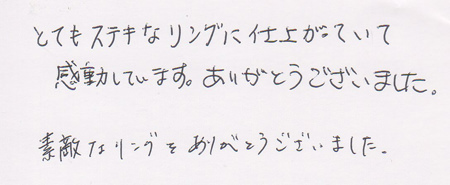 とてもステキなリングに仕上がっていて
感動しています。ありがとうございました。
素敵なリングをありがとうございました。